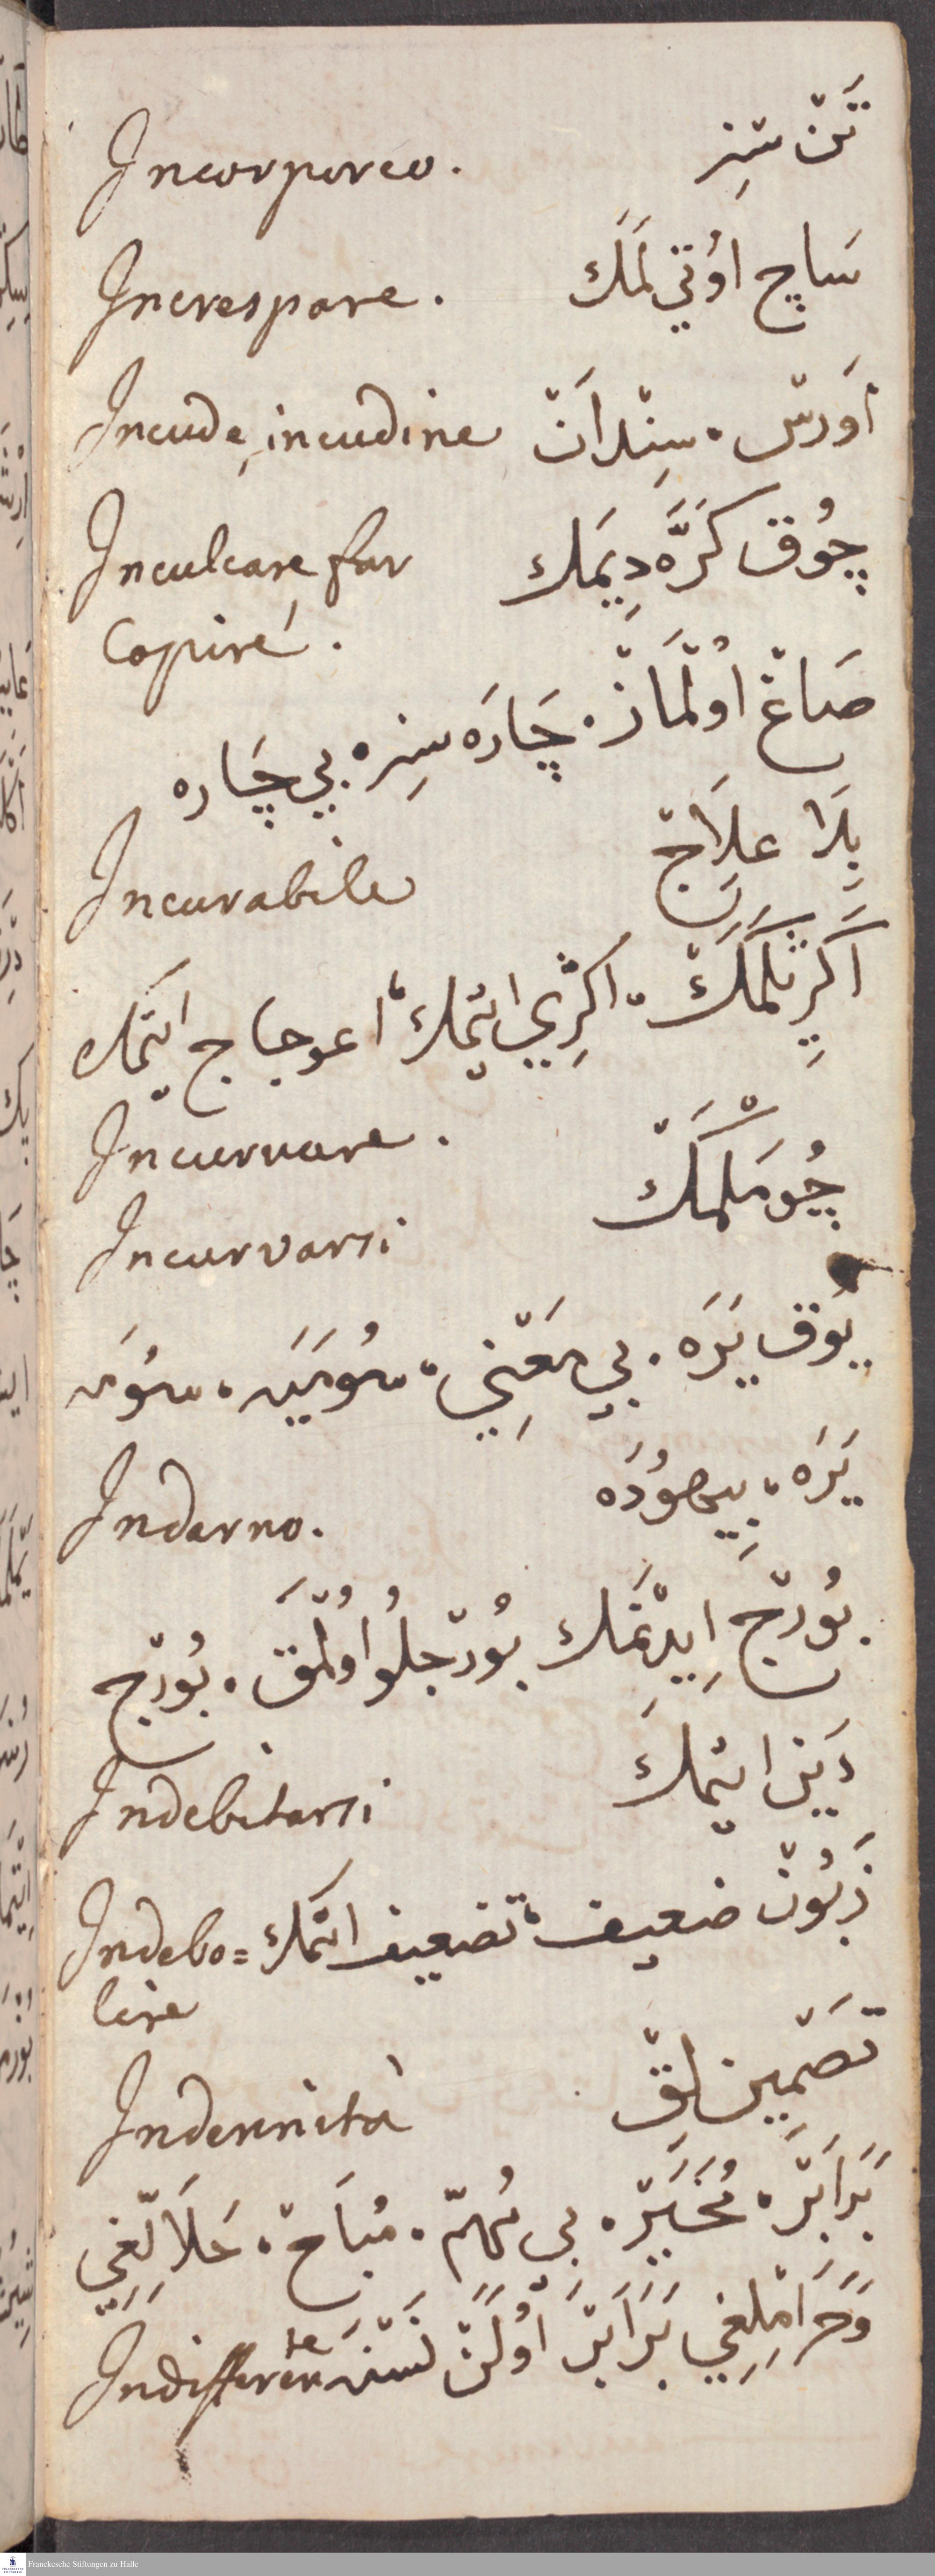 Incorporeo. تَنْ سِزْ
Increspare. سَاچ اوُتيِ لَمَك
Incude, incudine اوَرسْ. سِنْدَانْ
Inculcare, far چُوق كَرَّه دِيمَك
Capire.
صَاغْ اوُلْمَازْ. چَارَه سِزْ. بي چَاره
Incurabile بِلَا عِلَاجْ
اَكِرِيتْلَمَكْ. اكِرِي ايتمك، اعوجاج ايتمَك
Incurvare.
Incurvarsi چُومَلمَكْ
يُوق يَرَه. بي مَعْنِي. سُويَيَه. سُويَه
Indarno. يَرَه. بِيهوُدَه
بُورْج ايِدِنْمَك بُورْجلُو اوُلْمَق. بُورْج
Indebitarsi دَيْن ايتمكَ
Indebo= زَبُونْ ضعيف، تضعيف اتمَك
lire
Indennità تَضْمِين لِقْ
بَرَابَرْ. مُخَيَّرْ. بي مُهِمّ. مُبَاحْ. حَلَالِغِي
وَحَرَامْلِغِي بَرَابَرْ اوُلَنْ نَسْنَه
Indifferente
Franckesche Stiftungen zu Halle